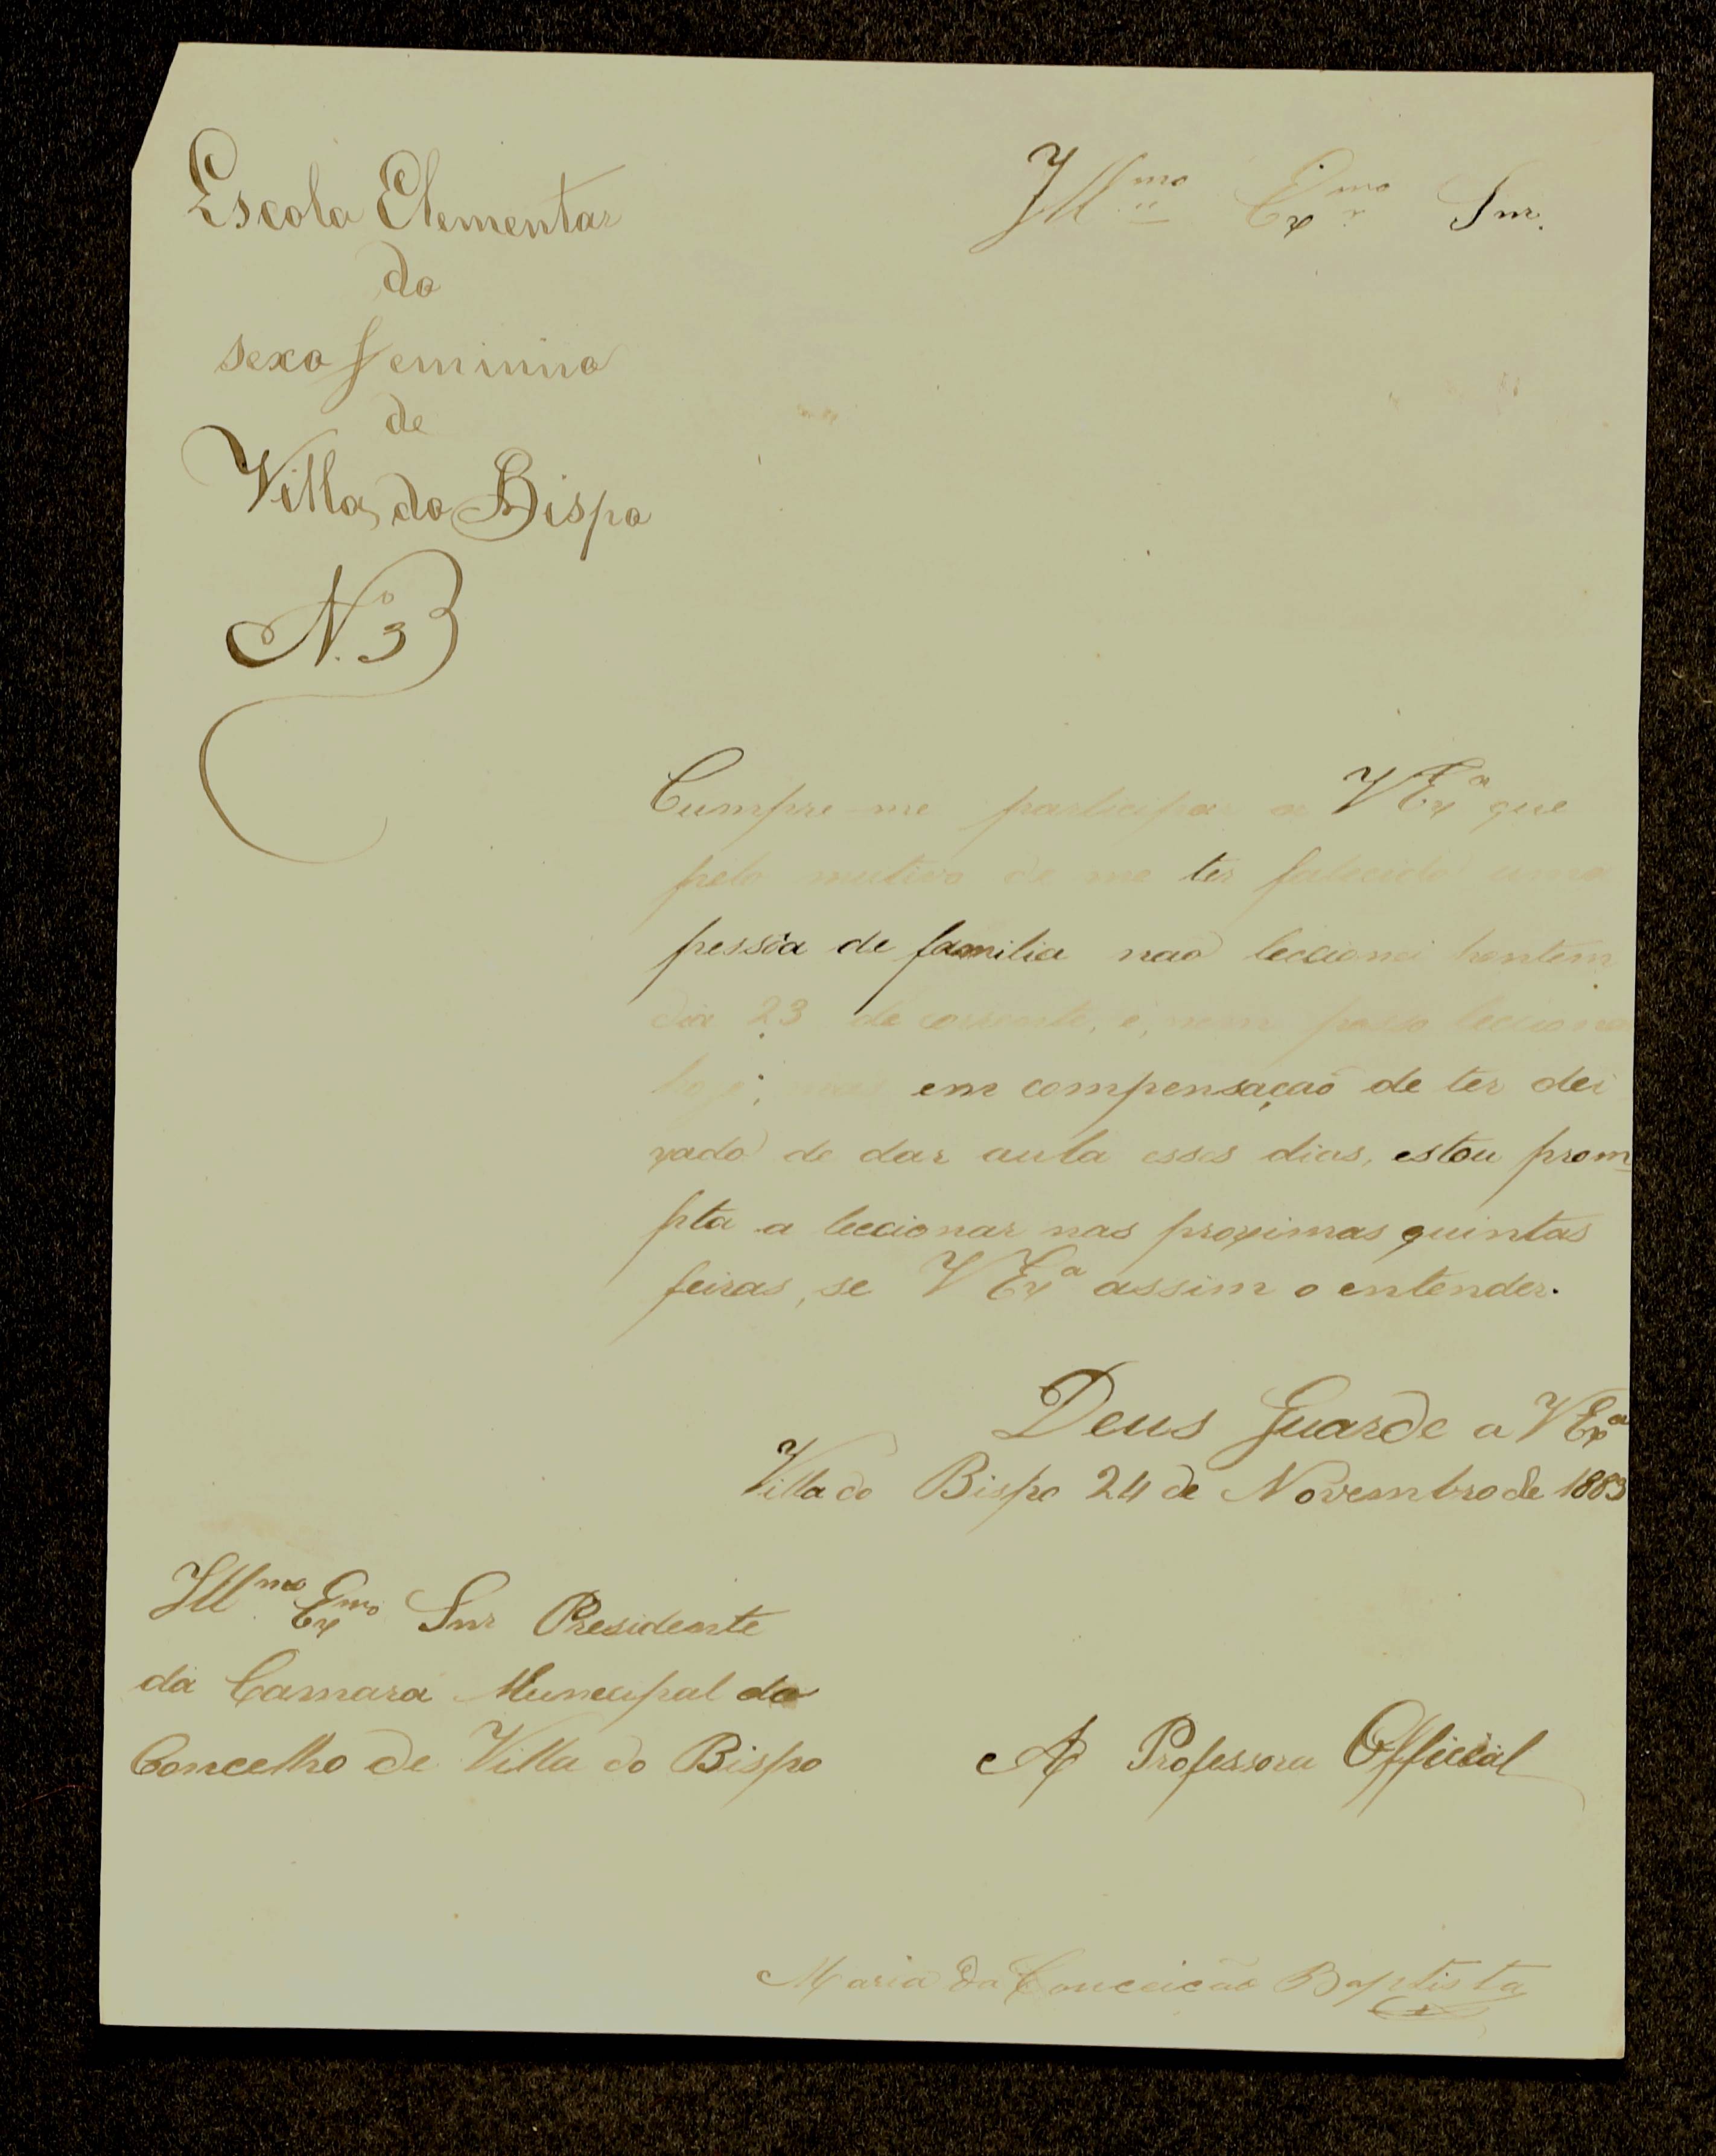 Escola Elementar
do
sexo feminino
de
Villa do Bispo
N.º 3
Illmo Exmo Snr.
Cumpre-me participar a VExª que
pelo mutivo de me ter falecido uma
pessôa de familia nao leccionei hontem
dia 23 do corrente, e, nem posso lecciona
hoje; mas em compensaçaõ de ter dei
xado de dar aula esses dias, estou prom
pta a leccionar nas proximas quintas
feiras, se VExª assim o entender.
Deus Guarde a VExª
Villa do Bispo 24 de Novembro de 1883
Illmo Exmo Snr Presidente
da Camara Municipal do
Concelho de Villa do Bispo
A Professora Official
Maria da Conceição Baptista